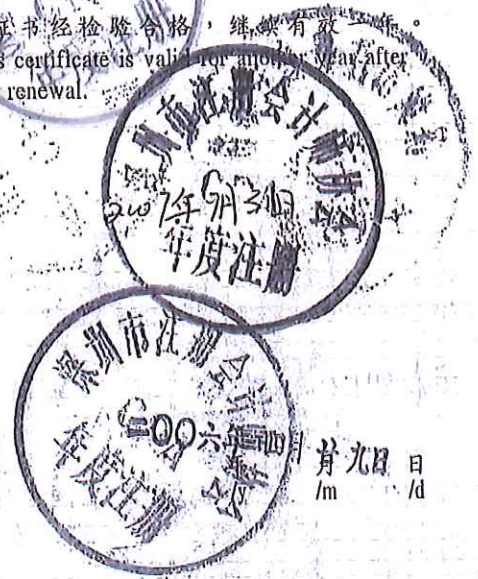 证书经检验合格，继续有效一年。
s certificate is valid for another year after
renewal.
深圳市注册会计师协会
2007年 月3 日
年度注册
深圳市注册会计师协会
二〇〇六年四月九日
年度注册
月 日
/m /d